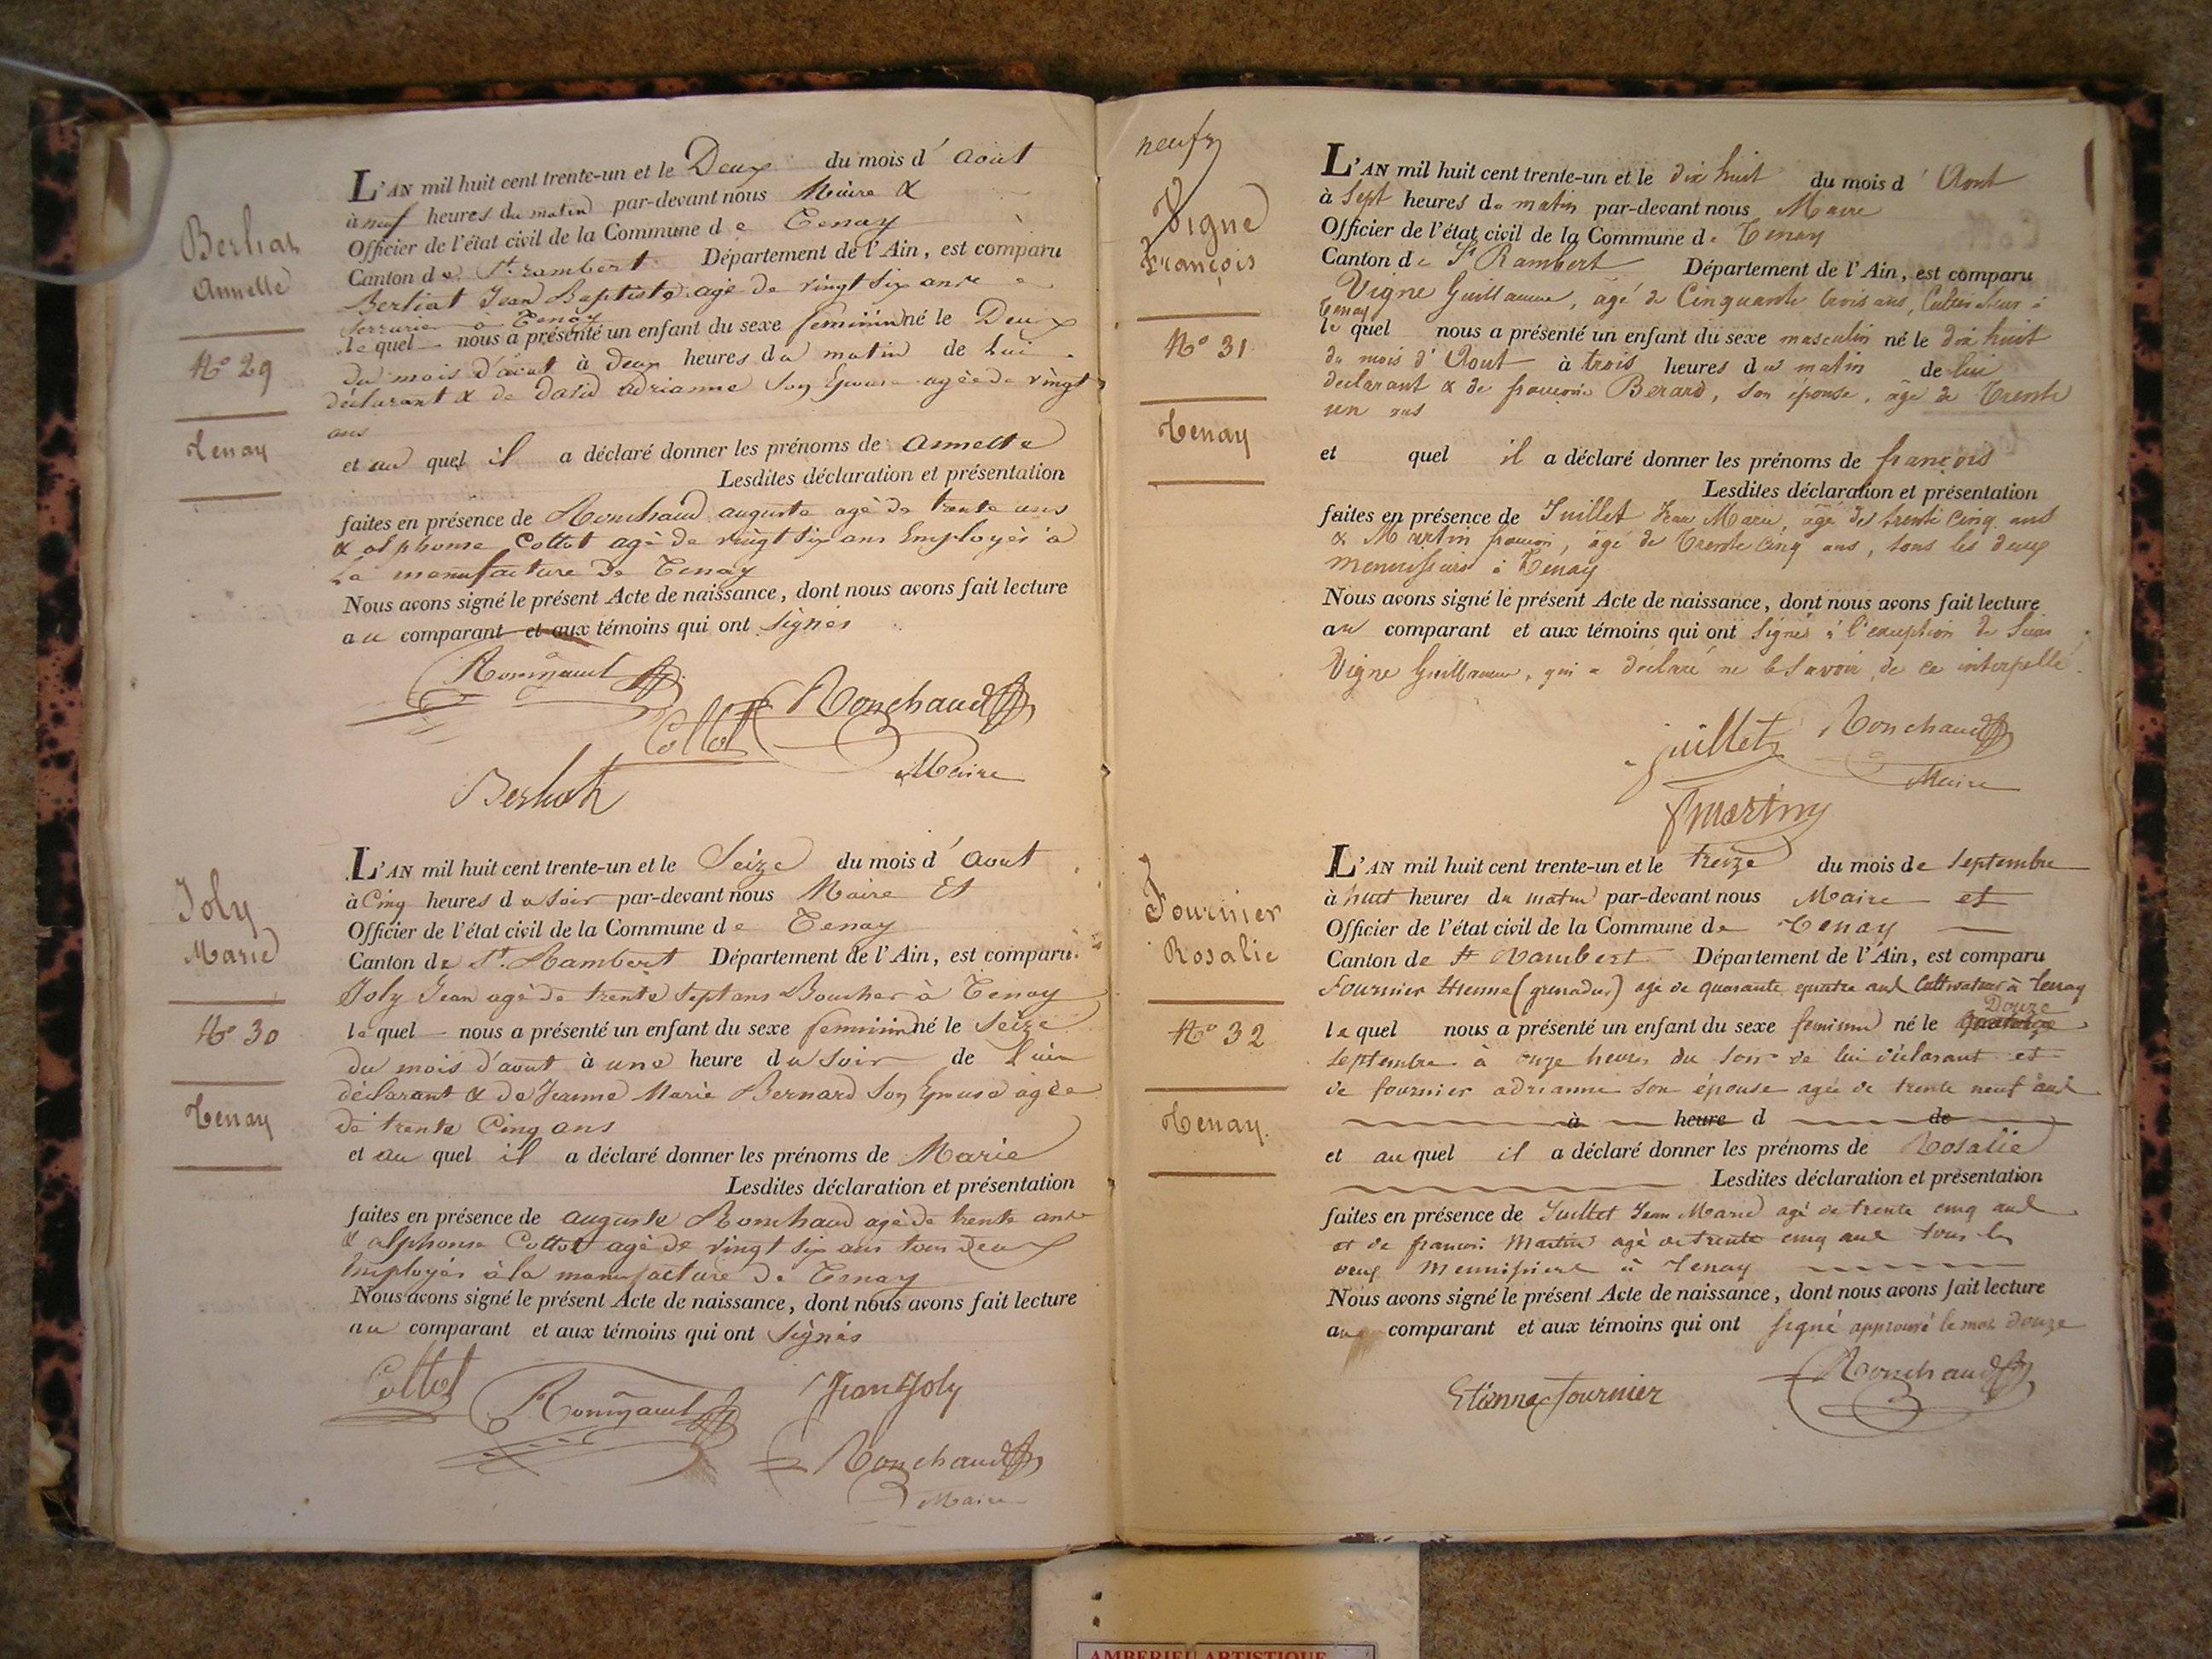 Berliat
Annette
N° 29
Tenay
L'AN mil huit cent trente-un et le Deux du mois d'Août
à neuf heures du matin par-devant nous Maire &
Officier de l'état civil de la Commune de Tenay
Canton de St. rambert Département de l'Ain, est comparu
Berliat Jean Baptiste agé de vingt six ans
serrurier à Tenay
lequel nous a présenté un enfant du sexe feminin né le Deux
du mois d'août à deux heures du matin de Lui
déclarant & de david adrianne son Epouse agée de vingt
ans
et au quel il a déclaré donner les prénoms de annette
Lesdites déclaration et présentation
faites en présence de Ronchaud auguste agé de trente ans
& alphonse Cottot agé de vingt six ans Employés à
La manufacture de Tenay
Nous avons signé le présent Acte de naissance, dont nous avons fait lecture
au comparant et aux témoins qui ont signés
Cottot
Ronchaud
Maire
Berliat
Joly
Marie
N° 30
Tenay
L'AN mil huit cent trente-un et le Seize du mois d'Aout
à Cinq heures du soir par-devant nous Maire Et
Officier de l'état civil de la Commune de Tenay
Canton de St. Rambert Département de l'Ain, est comparu
Joly Jean agé de trente sept ans Boucher à Tenay
lequel nous a présenté un enfant du sexe feminin né le Seize
du mois d'aout à une heure du soir de Lui
déclarant & de Jeanne Marie Bernard son Epouse agée
de trente Cinq ans
et au quel il a déclaré donner les prénoms de Marie
Lesdites déclaration et présentation
faites en présence de auguste Ronchaud agé de trente ans
& alphonse Cottot agé de vingt six ans tous deux
Employés à la manufacture de Tenay
Nous avons signé le présent Acte de naissance, dont nous avons fait lecture
au comparant et aux témoins qui ont signés
Cottot
Jean Joly
Ronchaud
Maire
Vigne
François
N° 31
Tenay
L'AN mil huit cent trente-un et le dix huit du mois d'Aout
à Sept heures du matin par-devant nous Maire
Officier de l'état civil de la Commune de Tenay
Canton de St Rambert Département de l'Ain, est comparu
Vigne Guillaume, âgé de Cinquante trois ans, Cultivateur à
Tenay
lequel nous a présenté un enfant du sexe masculin né le dix huit
du mois d'Aout à trois heures du matin de lui
declarant & de françoise Berard, son épouse, âgé de Trente
un ans
et quel il a déclaré donner les prénoms de françois
Lesdites déclaration et présentation
faites en présence de Juillet Jean Marie, âgé de trente cinq ans
& Martin françois, âgé de Trente cinq ans, tous les deux
menuisiers à Tenay
Nous avons signé le présent Acte de naissance, dont nous avons fait lecture
au comparant et aux témoins qui ont signés à l'exception de
Vigne Guillaume, qui a déclaré ne le savoir, de ce interpellé
juillet
Ronchaud
Maire
fmartin
Fournier
Rosalie
N° 32
Tenay.
L'AN mil huit cent trente-un et le treize du mois de septembre
à huit heures du matin par-devant nous Maire et
Officier de l'état civil de la Commune de Tenay
Canton de St Rambert Département de l'Ain, est comparu
Fournier Etienne (grenadier) agé de quarante quatre ans Cultivateur à Tenay
Douze
lequel nous a présenté un enfant du sexe feminin né le
septembre à onze heures du soir de lui déclarant et
de fournier adrianne son épouse agée de trente neuf ans
à heure d de
et auquel il a déclaré donner les prénoms de Rosalie
Lesdites déclaration et présentation
faites en présence de Juillet Jean Marie agé de trente cinq ans
et de francois Martin agé de trente cinq ans tous les
deux Menuisiers à Tenay
Nous avons signé le présent Acte de naissance, dont nous avons fait lecture
au comparant et aux témoins qui ont signé approuvé le mot douze
Etienne Fournier
Ronchaud
AMBERIEU ARTISTIQUE